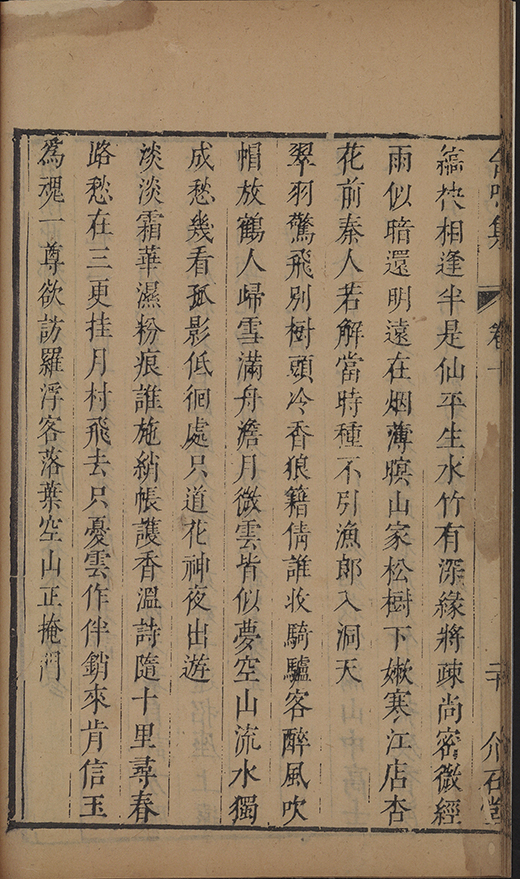 集 卷十 介石堂
縞袂相逢半是仙平生水竹有深緣將疎尚密微經
雨似暗還明遠在烟薄暝山家松樹下嫰寒江店杏
花前秦人若解當時種不引漁郎入洞天
翠羽驚飛別樹頭冷香狼籍倩誰收騎驢客醉風吹
帽放鶴人歸雪滿舟澹月微雲皆似夢空山流水獨
成愁幾看孤影低徊處只道花神夜出遊
淡淡霜華濕粉痕誰施綃帳護香溫詩隨十里尋春
路愁在三更挂月村飛去只憂雲作伴銷來肯信玉
爲魂一尊欲訪羅浮客落葉空山正掩門